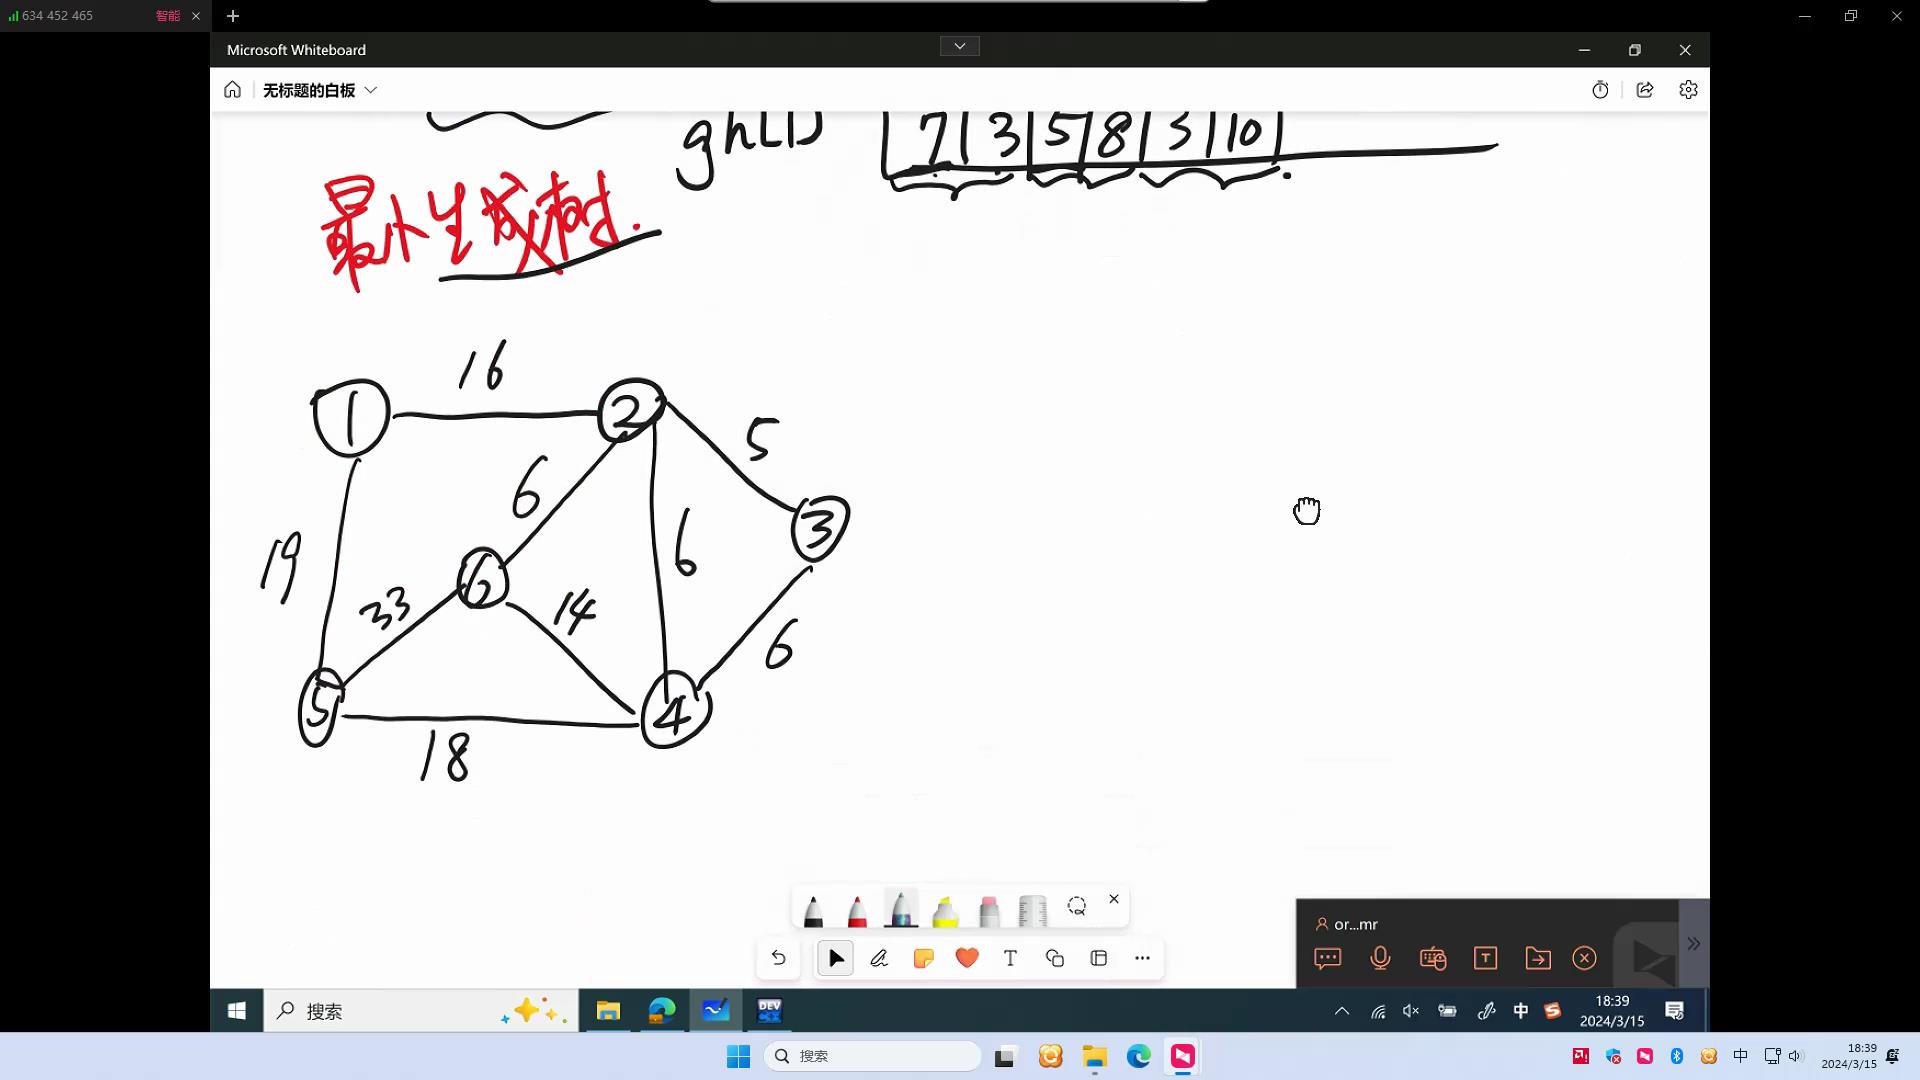 634 452 465 智能
Microsoft Whiteboard
无标题的白板
gh[1]
7 3 5 8 3 10
最小生成树.
16
1
2
5
6
3
19
6
6
33
14
6
5
4
18
or...mr
T
T
搜索
DEV
中
18:39
2024/3/15
搜索
中
18:39
2024/3/15